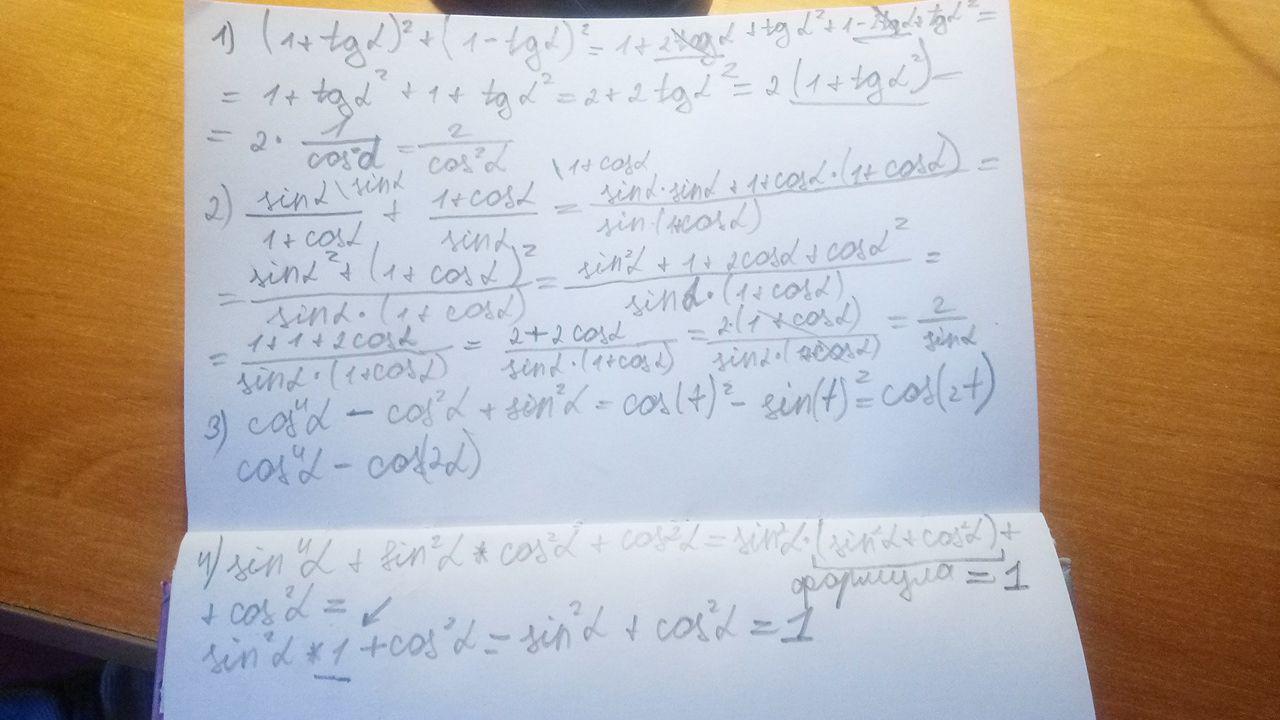 1) (1+tgα)² + (1-tgα)² = 1+2tgα+tgα²+1-2tgα+tgα² =
= 1+tgα²+1+tgα² = 2+2tgα² = 2(1+tgα²) =
= 2 · 1/cos²α = 2/cos²α
2) sinα\sinα/1+cosα + 1+cosα\1+cosα/sinα = sinα·sinα+1+cosα·(1+cosα)/sin·(1+cosα) =
= sinα²+(1+cosα)²/sinα·(1+cosα) = sin²α+1+2cosα+cosα²/sinα·(1+cosα) =
= 1+1+2cosα/sinα·(1+cosα) = 2+2cosα/sinα·(1+cosα) = 2·(1+cosα)/sinα·(1+cosα) = 2/sinα
3) cos⁴α - cos²α + sin²α = cos(t)² - sin(t)² = cos(2t)
cos⁴α - cos(2α)
4) sin⁴α + sin²α * cos²α + cos²α = sin²α·(sin²α+cos²α)+
формула = 1
+ cos²α = ↙
sin²α * 1 + cos²α = sin²α + cos²α = 1